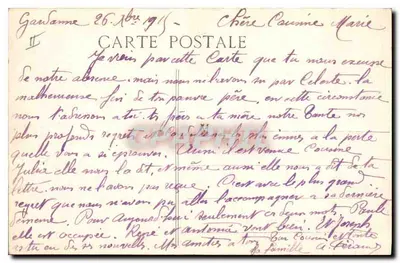 Gardanne 26 Xbre 1915 - Chère Cousine Marie
II
CARTE POSTALE
Je viens par cette Carte que tu nous excuse
de notre absence, mais nous n'avons su par Celeste la
malheureuse fin de ton pauvre père, en cette circonstance
nous t'adressons a tu et a ta mère, notre Tante nos
plus profonds regrets et
quelle vient a éprouver. Aussi est venue Cousine
Julie elle nous l'a dit, et même aussi elle nous a dit de ta
lettre nous ne l'avons pas reçue. C'est avec le plus grand
regret que nous n'avons pu aller l'accompagner a sa dernière
Pour Aujourd'hui seulement ces deux mots. Paule
elle est occupée. René et Antoine vont bien. Et Joseph
as tu eu de ses nouvelles. Mes amitiés a ton Cousin
famille